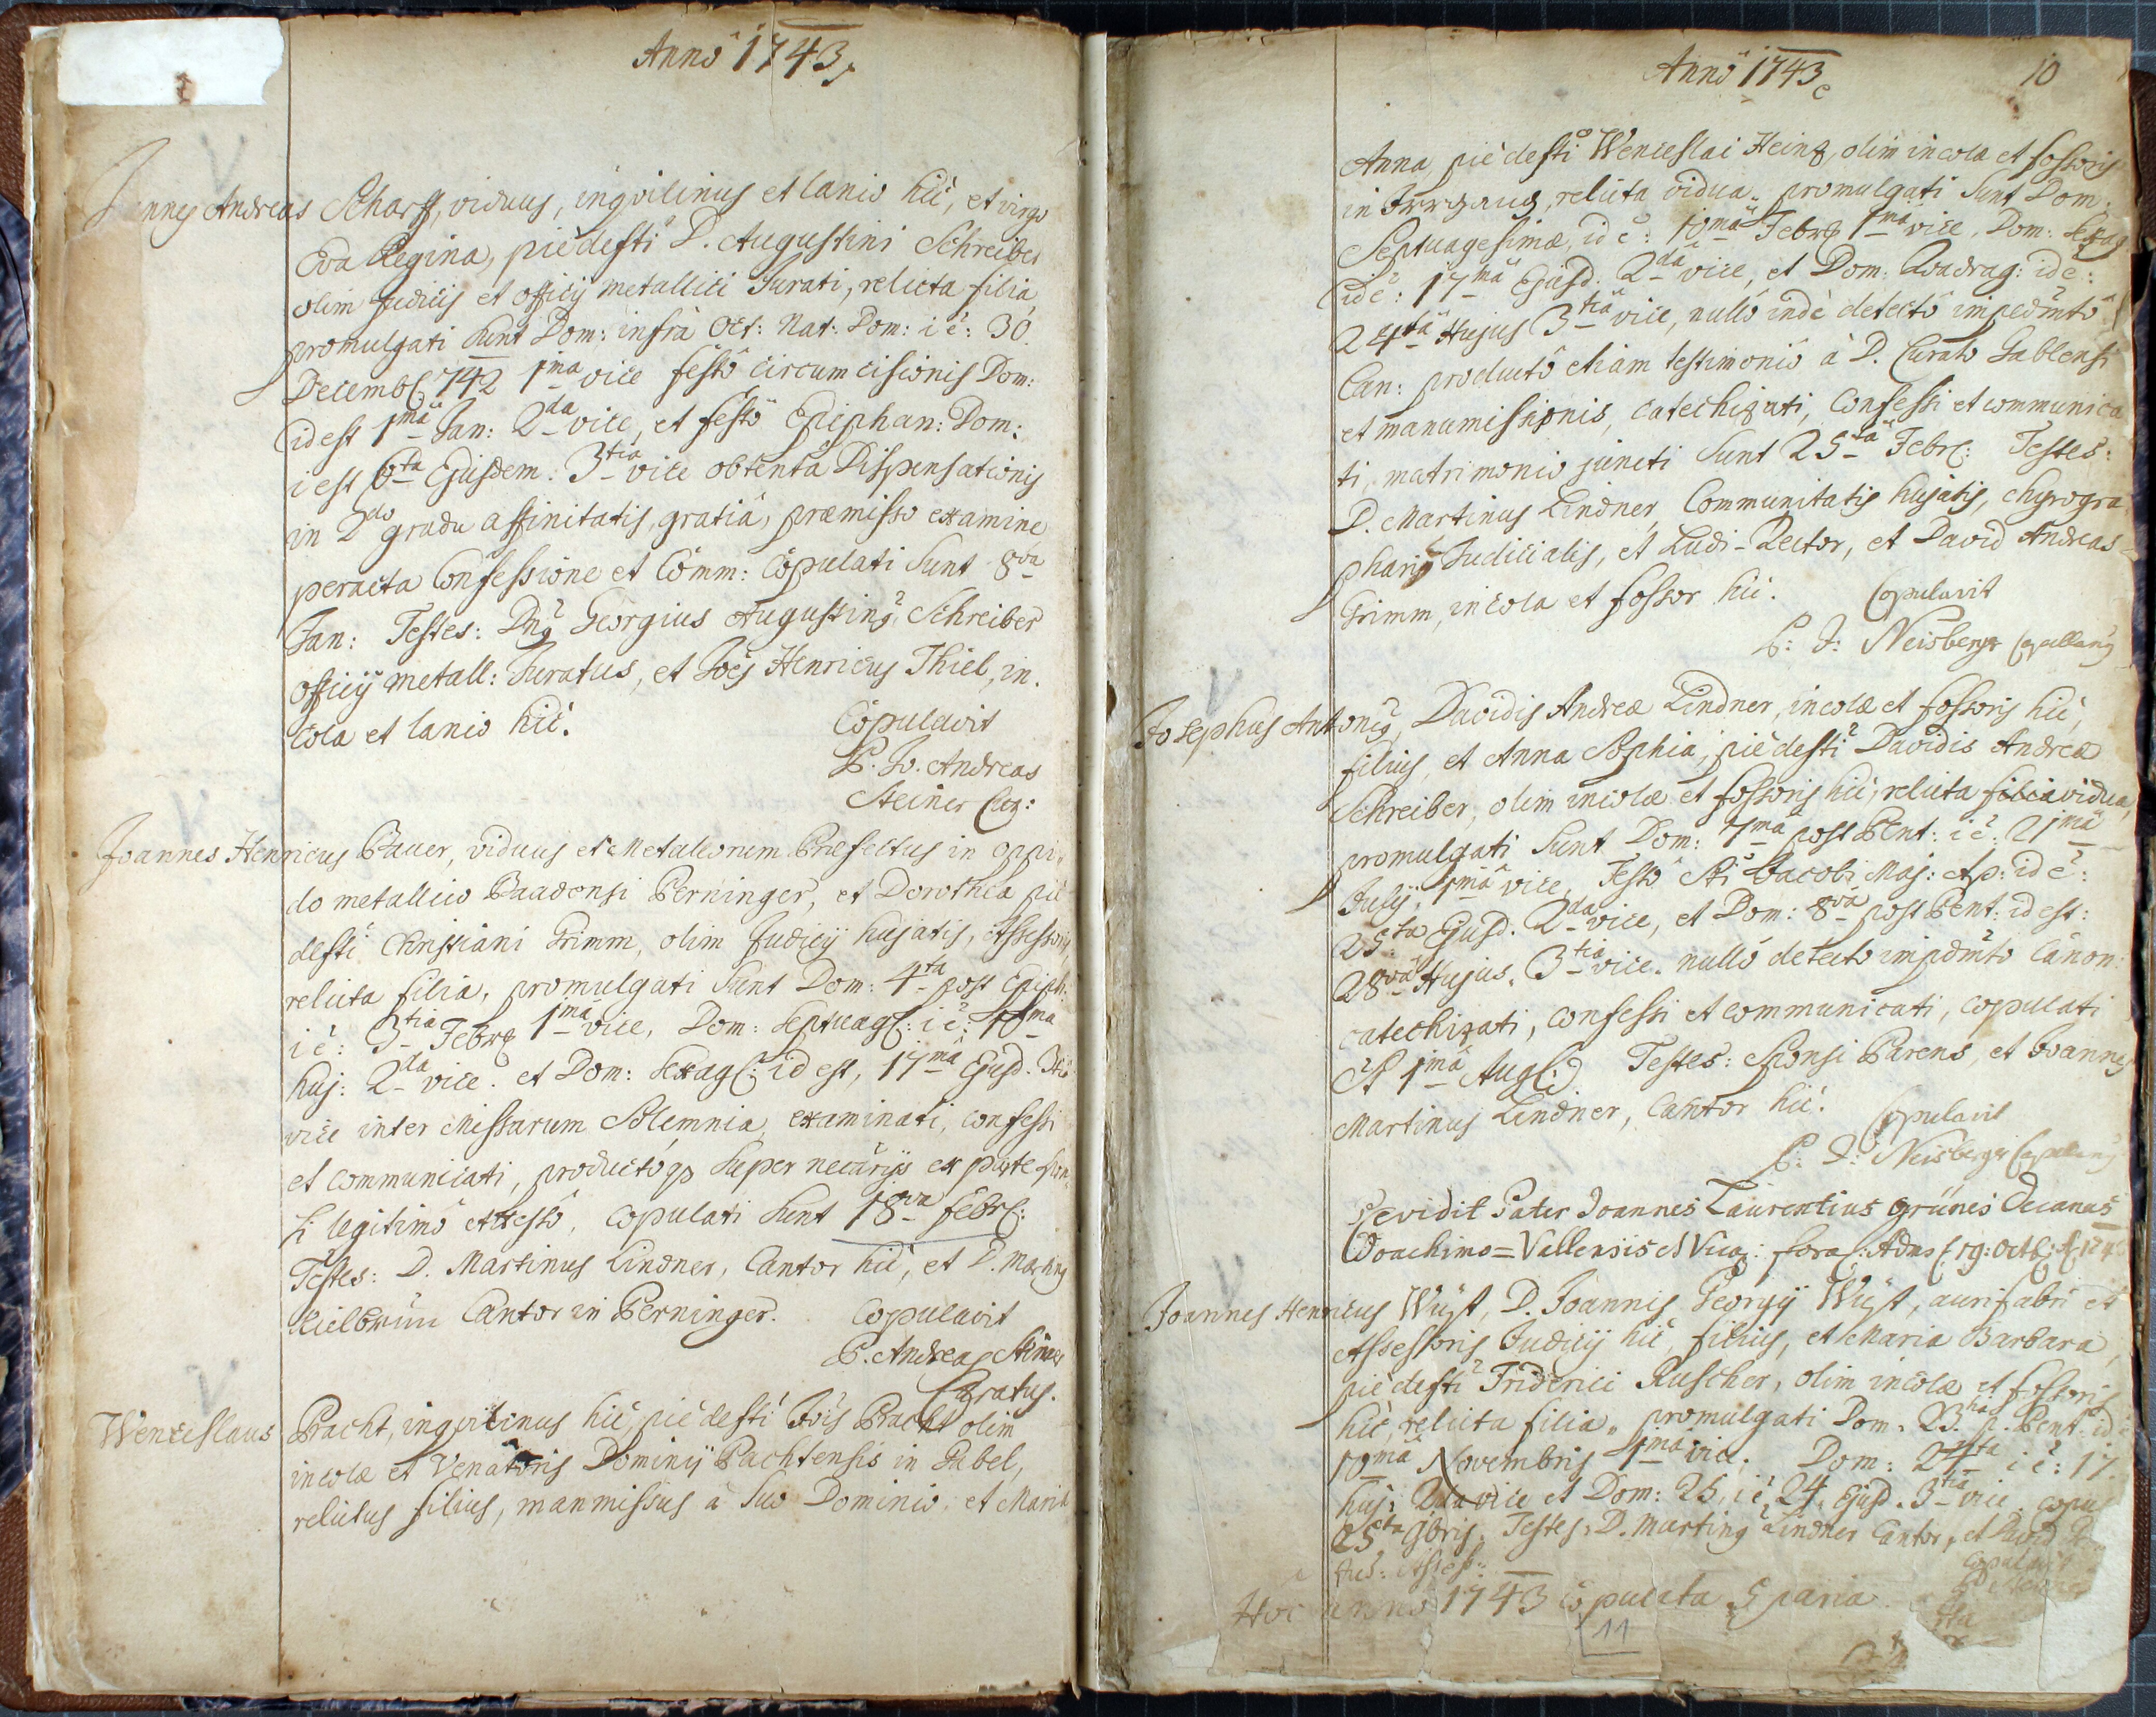 Anno 1743.
Joannes Andreas Scharff, viduus, inqvilinus et lanio hic, et virgo
Eva Regina, piè defti D. Augustini Schreiber
olim Judicij et officij metallici Jurati, relicta filia
promulgati sunt Dom: infra Oct: Nat: Dom: i ē: 30.
Decemb: 742 1ma vice festo circumcisionis Dom:
id est 1ma Jan: 2da vice, et festo Epiphan: Dom:
i est 6ta Ejusdem. 3tia vice obtenta Dispensationis
in 2do gradu affinitatis, gratia, præmisso examine
peracta Confessione et Comm: Copulati sunt 8va
Jan: Testes: Dnus Georgius Augustinus Schreiber
officij metall: Juratus, et Joës Henricus Thiel, in-
cola et lanio hic. Copulavit
P. Jo. Andreas
Steiner Cur:
Joannes Henricus Bauer, viduus et Metallorum Præfectus in oppi-
do metallico Baadensi Perninger, et Dorothea piè
defti Christiani Grimm, olim Judicij hujatis, Assessoris
relicta filia, promulgati sunt Dom: 4ta post Epiph:
i ē: 3tia Febrg 1ma vice, Dom: Septuag: i ē: 10ma
huj: 2da vice. et Dom: Sexag: id est, 17ma Ejusd. 3tia
vice inter Missarum Solemnia, examinati, confessi
et communicati, productoqz super necarijs ex parte spon-
si legitimo Attesto, copulati sunt 18va Febr:
Testes: D. Martinus Lindner, Cantor hic, et D. Martinus
Cantor in Perninger. Copulavit
P. Andreas Steiner
Curatus.
Wenceslaus Pracht, inqvilinus hic, piè defti Jois Pracht olim
incolæ et Venatoris Dominij Pachtensis in Gabel,
relictus filius, manmissus à suo Dominio, et Maria
Anno 1743 10
Anna, piè defti Wenceslai Heinz, olim incola et fossoris
in Irrgang, relicta vidua, promulgati sunt Dom.
Septuagesimæ, id ē: 10ma Febrg 1ma vice, Dom: Sexag
id ē: 17ma Ejusd. 2da vice, et Dom: Qvadrag: id ē:
24ta Hujus 3tia vice, nullo inde detecto impedmto
Can: producto etiam testimonio à D. Curato Gablensi
et manumissionis, catechizati, confessi et communica
ti, matrimonio juncti sunt 25ta Febr: Testes:
D. Martinus Lindner, Communitatis hujatis, chyrogra
pharius Judicialis, et Ludi-Rector, et David Andreas
Grimm, incola et fossor hic. Copulavit
P: J: Neisberger Capellanus
Josephus Antonius, Davidis Andreæ Lindner, incolæ et fossoris hic,
filius, et Anna Sophia, piè defti Davidis Andreæ
Schreiber, olim incolæ et fossoris hic, relicta filia vidua,
promulgati sunt Dom: 7ma post Pent: i ē: 21ma
Julij, 1ma vice, Festo Sti Jacobi Maj: Ap: id ē:
25ta Ejusd. 2da vice, et Dom: 8va post Pent: id est:
28va Hujus, 3tia vice. nullo detecto impdmto Canon:
catechizati, confessi et communicati, copulati
st 1ma Aug: Testes: Sponsi Parens, et Joannes
Martinus Lindner, Cantor hic. Copulavit
P: J: Neisberger Capellanus
Revidit Pater Joannes Laurentius Grünes Decanus
Joachimo=Vallensis et Vica: fora: Adms 19: Octb: 174
Joannes Henricus Wüst, D. Joannis Georgij Wüst, aurifabri et
Assessoris Judicij hic, filius, et Maria Barbara,
piè defti Friderici Ruscher, olim incolæ et fossoris
hic, relicta filia, promulgati Dom. 23. p. Pent: id ē
10ma Novembris 1ma vice. Dom: 24ta i ē: 17.
huj: 2da vice et Dom: 25, i ē 24 Ejusd. 3tia vice. copul
25ta 9bris. Testes: D. Martinus Lindner Cantor, et David
Jud: Assess: Copulavit
Hoc anno 1743 copulata 5 paria.
11